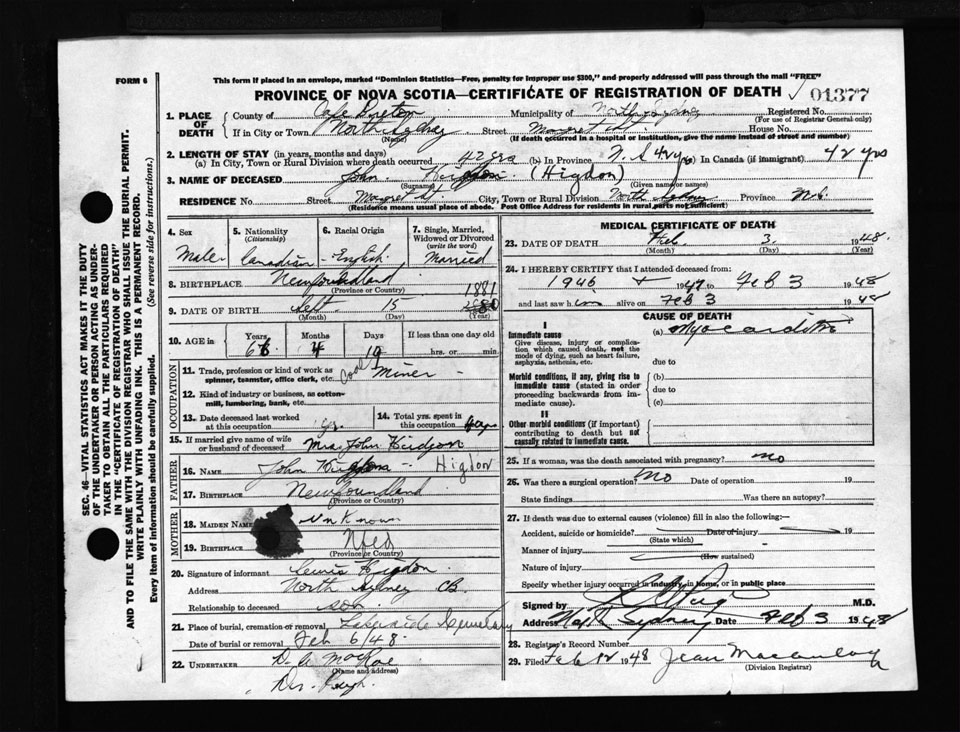 FORM 6
This form if placed in an envelope, marked "Dominion Statistics—Free, penalty for improper use $300," and properly addressed will pass through the mail "FREE"
PROVINCE OF NOVA SCOTIA—CERTIFICATE OF REGISTRATION OF DEATH 01377
1. PLACE OF DEATH County of Cape Breton Municipality of North Sydney Registered No.
(For use of Registrar General only)
If in City or Town North Sydney Street Margaret St. House No.
(Name) (If death occurred in a hospital or institution, give the name instead of street and number)
2. LENGTH OF STAY (in years, months and days)
(a) In City, Town or Rural Division where death occurred 42 yrs (b) In Province N.S 42 yrs (c) In Canada (if immigrant) 42 yrs
3. NAME OF DECEASED John (Higdon)
(Surname) (Given name or names)
RESIDENCE No. Street Margaret St City, Town or Rural Division North Sydney Province N.S.
(Residence means usual place of abode. Post Office Address for residents in rural parts not sufficient)
4. Sex 5. Nationality (Citizenship) 6. Racial Origin 7. Single, Married, Widowed or Divorced (write the word)
Male Canadian - English Married
8. BIRTHPLACE Newfoundland
(Province or Country) 1881
9. DATE OF BIRTH Sept 15
(Month) (Day) (Year)
10. AGE in Years Months Days If less than one day old
4 19 hrs. or min.
OCCUPATION
11. Trade, profession or kind of work as spinner, teamster, office clerk, etc. Coal Miner
12. Kind of industry or business, as cotton-mill, lumbering, bank, etc.
13. Date deceased last worked at this occupation 14. Total yrs. spent in this occupation
15. If married give name of wife or husband of deceased Mrs John
FATHER
16. NAME John Higdon
17. BIRTHPLACE Newfoundland
(Province or Country)
MOTHER
18. MAIDEN NAME Unknown
19. BIRTHPLACE Nfld
(Province or Country)
20. Signature of informant Lewis Higdon
Address North Sydney CB
Relationship to deceased son
21. Place of burial, cremation or removal Lakeside Cemetery
Date of burial or removal Feb 6/48
22. UNDERTAKER D. A. MacRae
(Name and address)
MEDICAL CERTIFICATE OF DEATH
23. DATE OF DEATH Feb. 3 1948.
(Month) (Day) (Year)
24. I HEREBY CERTIFY that I attended deceased from:
1946 + 1947 to Feb 3 1948
and last saw him alive on Feb 3 1948
CAUSE OF DEATH
I
Immediate cause (a) Myocarditis
Give disease, injury or complication which caused death, not the mode of dying, such as heart failure, asphyxia, asthenia, etc. due to
Morbid conditions, if any, giving rise to immediate cause (stated in order proceeding backwards from immediate cause). (b)
due to
(c)
II
Other morbid conditions (if important) contributing to death but not causally related to immediate cause.
25. If a woman, was the death associated with pregnancy? No
26. Was there a surgical operation? No Date of operation 19
State findings Was there an autopsy?
27. If death was due to external causes (violence) fill in also the following:—
Accident, suicide or homicide? Date of injury 19
(State which)
Manner of injury
(How sustained)
Nature of injury
Specify whether injury occurred in industry, in home, or in public place
Signed by M.D.
Address North Sydney Date Feb 3 1948
28. Registrar's Record Number
29. Filed Feb 12 1948 Jean Macaulay
(Division Registrar)
SEC. 46—VITAL STATISTICS ACT MAKES IT THE DUTY
OF THE UNDERTAKER OR PERSON ACTING AS UNDER-
TAKER TO OBTAIN ALL THE PARTICULARS REQUIRED
IN THE "CERTIFICATE OF REGISTRATION OF DEATH"
AND TO FILE THE SAME WITH THE DIVISION REGISTRAR WHO SHALL ISSUE THE BURIAL PERMIT.
WRITE PLAINLY WITH UNFADING INK. THIS IS A PERMANENT RECORD.
Every item of information should be carefully supplied. (See reverse side for instructions.)